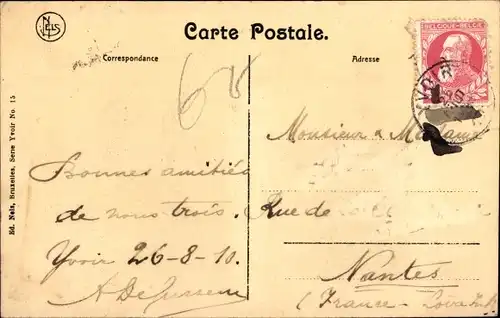 NELS
Carte Postale.
Correspondance
Adresse
BELGIQUE-BELGIË
YVOIR
68
Monsieur & Madame
Bonnes amitiés
de nous trois.
Rue de
Yvoir 26-8-10.
Nantes
(France - Loire Inf
Ed. Nels, Bruxelles, Serie Yvoir No. 15